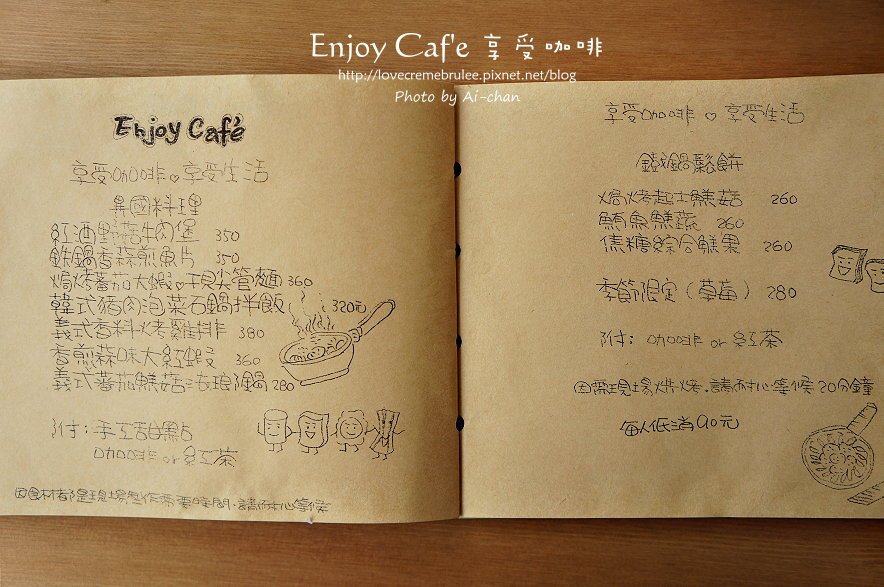 Enjoy Caf'e 享受咖啡
http://lovecremebrulee.pixnet.net/blog
Photo by Ai-chan
Enjoy Café
享受咖啡♥享受生活
異國料理
紅酒野菇牛肉堡 350
鉄鍋香蒜煎魚片 350
焗烤蕃茄大蝦♥干貝尖管麵 360
韓式豬肉泡菜石鍋拌飯 320元
義式香料烤雞排 380
香煎蒜味大紅蝦 360
義式蕃茄鮮菇法琅鍋 280
附:手工甜點
咖啡 or 紅茶
因食材都是現場製作需要時間.請耐心等候
享受咖啡♡享受生活
鐵鍋鬆餅
焗烤起士鮮菇 260
鮪魚鮮蔬 260
焦糖綜合鮮果 260
季節限定(草莓) 280
附:咖啡 or 紅茶
因需現場烘烤.請耐心等候20分鐘
每人低消90元